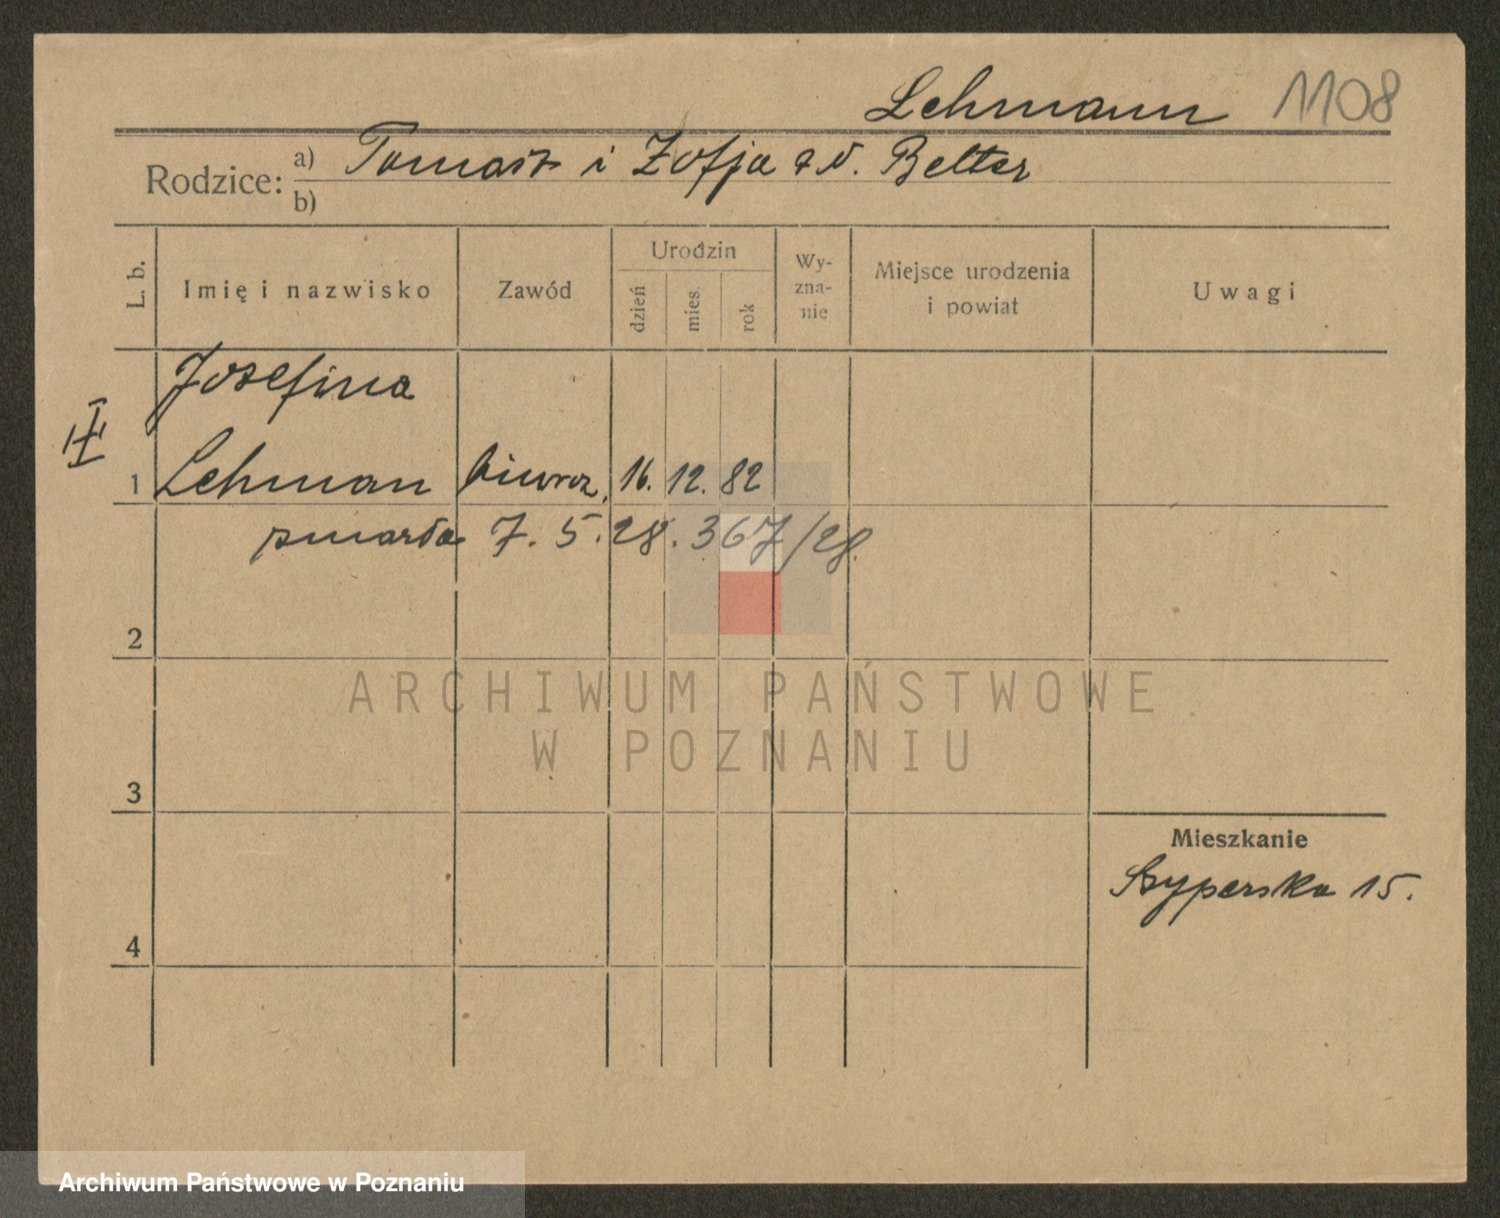 Lehmann 1108
Rodzice: a) Tomasz i Zofja z d. Belter
b)
L. b.
Imię i nazwisko
Zawód
Urodzin
dzień
mies.
rok
Wy-
zna-
nie
Miejsce urodzenia
i powiat
Uwagi
Josefina
III
1 Lehman biuroz. 16. 12. 82
zmarła 7. 5. 28. 367/28.
2
ARCHIWUM PAŃSTWOWE
W POZNANIU
3
Mieszkanie
Szyperska 15.
4
Archiwum Państwowe w Poznaniu